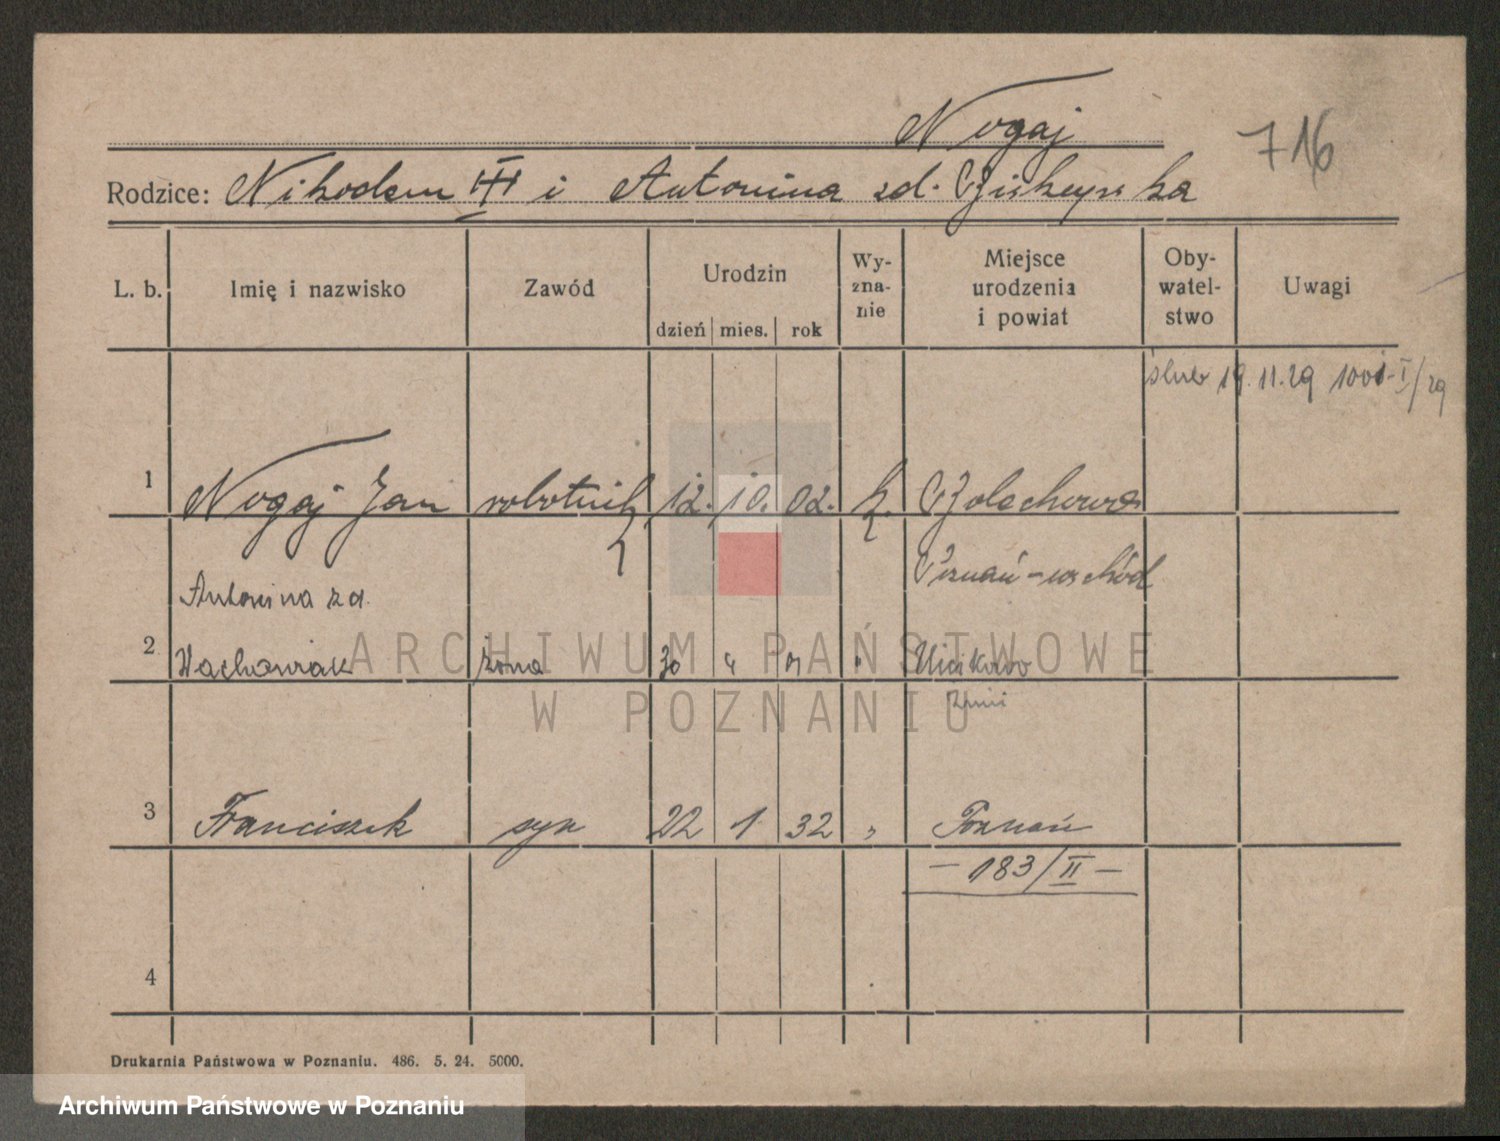 Nogaj
716
Rodzice: Nikodem III i Antonina zd.
L. b. Imię i nazwisko Zawód Urodzin dzień mies. rok Wy-zna-nie Miejsce urodzenia i powiat Oby-watel-stwo Uwagi
ślub 19.11.29
1 Nogaj Jan robotnik 12. 10. 02. k. Bolechowo
Poznań-wschód
Antonina zd.
2 żona 30 4 "
3 Franciszek syn 22 1 32 " Poznań
- 183/II -
4
Drukarnia Państwowa w Poznaniu. 486. 5. 24. 5000.
ARCHIWUM PAŃSTWOWE
W POZNANIU
Archiwum Państwowe w Poznaniu